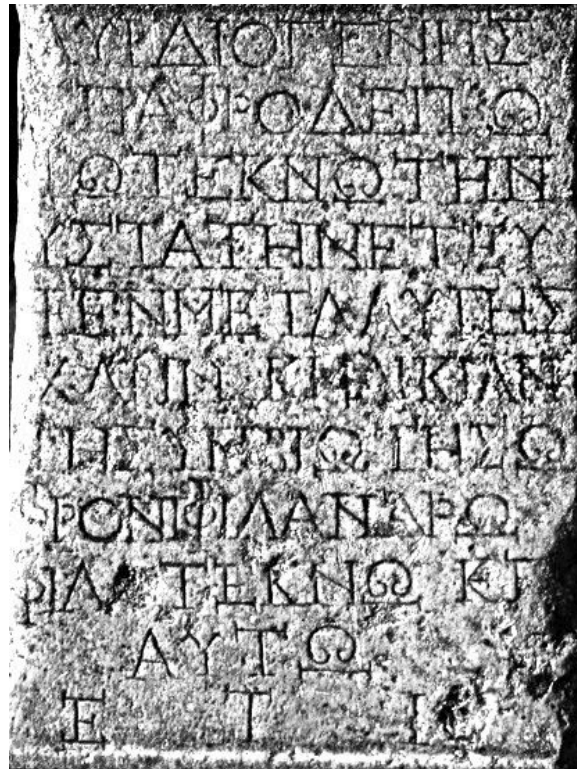 ΑΥΡΔΙΟΓΕΝΗΣ
ΠΑΦΡΟΔΕΙΤΩ
ΤΩΤΕΚΝΩΤΗΝ
ΥΣΤΑΤΗΝΕΤΕΥ
ΞΕΝΜΕΤΑΛΥΠΗΣ
ΧΑΡΙΝ
ΤΗΣΥΜΒΙΩΤΗΣΩ
ΦΡΟΝΙΦΙΛΑΝΔΡΩ
ΦΙΛΟΤΕΚΝΩ ΚΕ
ΑΥΤΩ
Ε Τ Ι Ϛ